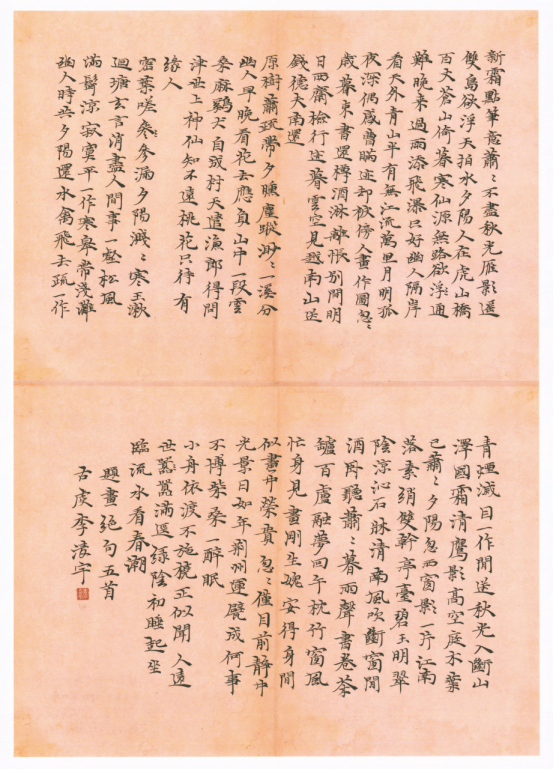 新霜點筆意蕭〻不盡秋光雁影遥
雙島欲浮天拍水夕陽人在虎山橋
百丈蒼山倚暮寒仙源無路欲浮通
難晚来過雨添飛瀑只好幽人隔岸
看天外青山半有無江流萬里月明孤
夜深仍感曹瞞迹却被傍人畫作圖忽〻
歳暮束書還樽酒淋漓悵别間明
日西齋檢行迹暮雲空見越南山送
錢德大南還
原樹蕭疏帶夕曛塵蹤渺〻一溪分
幽人早晚看花去應負山中一段雲
桑麻鷄犬自成村天遣漁郎得問
津世上神仙知不遠桃花只待有
緣人
密葉嗟參漏夕陽濺〻寒玉漱
迴塘玄言消盡人間事一壑松風
滿鬢涼寂寞平一作寒寧常淺灘
幽人時共夕陽還水禽飛去疏一作
青煙滅目一作閒送秋光入斷山
澤國霜清鷹影高空庭木葉
已蕭〻夕陽忽西窗影一片江南
落素綃雙幹亭臺碧玉明翠
陰涼沁石脉清南風吹斷窗間
酒卧聽蕭〻暮雨聲書卷茶
罏百慮融夢回午枕竹窗風
忙身見畫剛生媿安得身閒
似畫中榮貴忽〻僅目前靜中
光景日如年荊州運甓成何事
不博柴桑一醉眠
小舟依渡不施橈正似聞人遠
世囂囂滿溪緑陰初睡起坐
臨流水看春潮
題畫絶句五首
古虞李凌宇